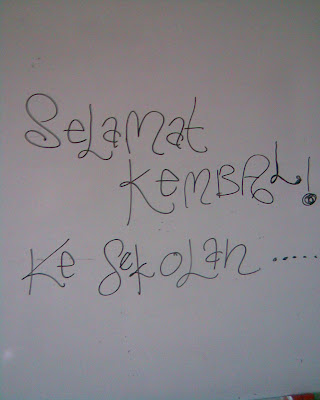 SeLaMat
KemBAL!
Ke SekoLah .....